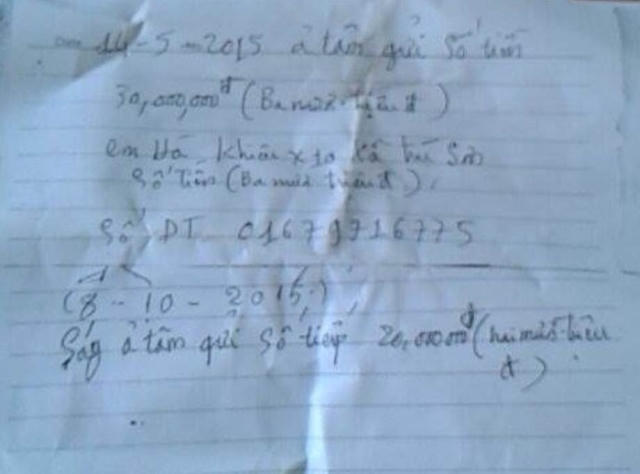 14-5-2015 ả tâm gửi số tiền
30,000,000đ (Ba mươi triệu đ)
em Hà khâu x10 xã
số tiền (Ba mươi triệu đ).
Số ĐT 01679716775
(8-10-2015)
ả tâm gửi số tiếp 20,000000đ (hai mươi triệu
đ)